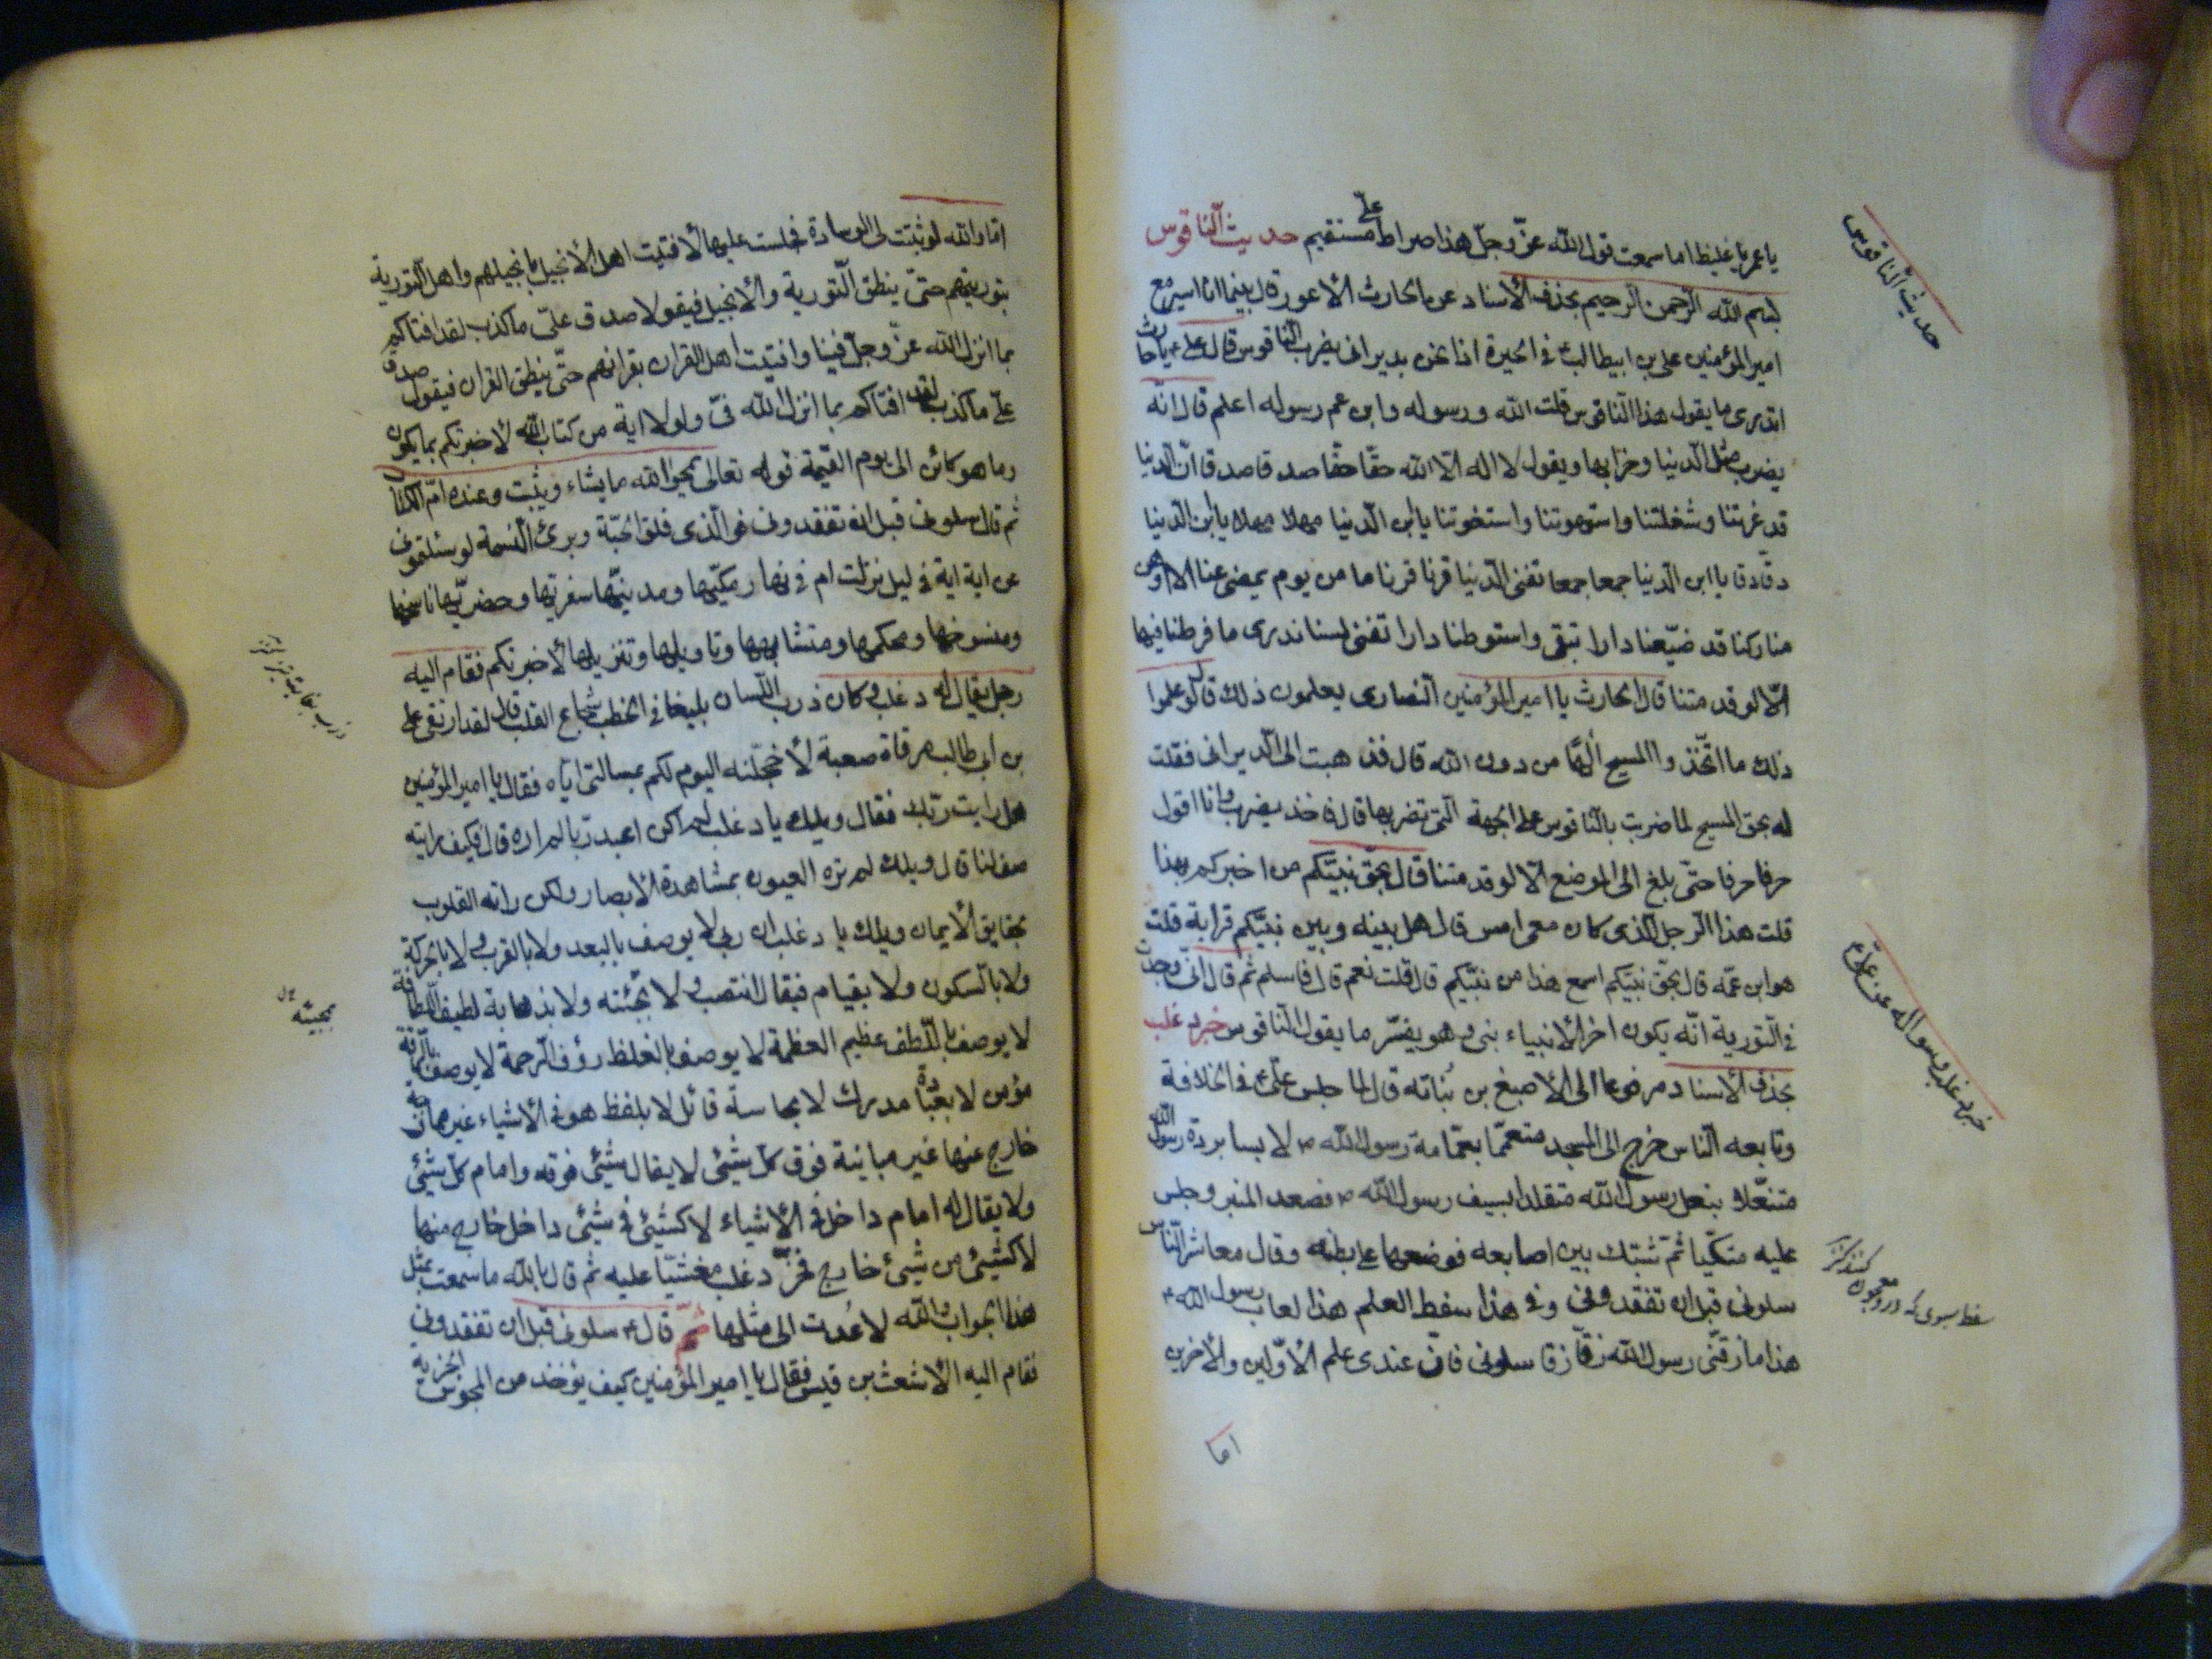 يا عمر يا غليظ اما سمعت قول الله عزّ وجلّ هذا صراط علىّ مستقيم حديث النّاقوس
بسم الله الرّحمن الرّحيم بحذف الأسناد عن الحارث الأعور قال بينما انا اسير مع
امير المؤمنين على بن ابيطالب ع في الحيرة اذا نحن بديرانى يضرب النّاقوس قال على ع يا حارث
اتدرى ما يقول هذا النّاقوس قلت الله ورسوله وابن عم رسوله اعلم قال انّه
يضرب مثل الدّنيا وخرابها ويقول لا اله الّا الله حقّا حقّا صدقا صدقا انّ الدّنيا
قد غرّتنا وشغلتنا واستهوتنا واستغوتنا يا بن الدّنيا مهلا مهلا يا بن الدّنيا
دقّا دقّا يا ابن الدّنيا جمعا جمعا تفنى الدّنيا قرنا قرنا ما من يوم يمضى عنا الا اوهن
منا ركنا قد ضيّعنا دارا تبقى واستوطنا دارا تفنى لسنا ندرى ما فرطنا فيها
الّا لو قد متنا قال الحارث يا امير المؤمنين النّصارى يعلمون ذلك قال لو علموا
ذلك ما اتّخذوا المسيح الهًا من دون الله قال فذهبت الى الدّيرانى فقلت
له بحق المسيح لما ضربت بالنّاقوس على الجهة الّتى تضربها قال فاخذ يضرب وانا اقول
حرفا حرفا حتّى بلغ الى الموضع الّا لو قد متنا قال بحقّ نبيّكم من اخبركم بهذا
قلت هذا الرّجل الّذى كان معى امس قال هل بينه وبين نبيّكم قرابة قلت
هو ابن عمّه قال بحقّ نبيّكم اسمع هذا من نبيّكم قال قلت نعم قال فاسلم ثمّ قال انّى وجدت
في التّورية انّه يكون اخر الأنبياء نبى وهو يفسّر ما يقول النّاقوس خبر دغلب
بحذف الأسناد مرفوعا الى الأصبغ بن نباته قال لما جلس علىّ ع في الخلافة
وتابعه النّاس خرج الى المسجد متعمّما بعمّامة رسول الله ص لابسا بردة رسول الله
متنعّلا بنعل رسول الله متقلدا بسيف رسول الله ص فصعد المنبر وجلس
عليه متكيّا ثمّ شبّك بين اصابعه فوضعها على بطنه وقال معاشر النّاس
سلونى قبل ان تفقدونى وفى هذا سفط العلم هذا لعاب رسول الله ص
هذا ما زقّنى رسول الله زقّا زقّا سلونى فانّ عندى علم الأوّلين والأخرين
اما
حديث النّاقوس
خبر دغلب وسواله عن علىّ ع
سفط سبدى كه در و معجون كنند
امّا والله لو ثنيت لى الوسادة فجلست عليها لأفتيت اهل الأنجيل بانجيلهم واهل التّورية
بتوريتهم حتّى ينطق التّورية والأنجيل فيقولا صدق علىّ ما كذب لقد افتاكم
بما انزل الله عزّ وجلّ فينا وافتيت اهل القران بقرانهم حتّى ينطق القران فيقول صدق
علىّ ما كذب لقد افتاكم بما انزل الله فىّ ولولا اية من كتاب الله لأخبرتكم بما يكون
وما هو كائن الى يوم القيمة قوله تعالى يمحو الله ما يشاء ويثبت وعنده امّ الكتاب
ثم قال سلونى قبل ان تفقدونى فو الّذى فلق الحبّة وبرئ النّسمة لو سئلتمونى
عن اية اية في ليل نزلت ام في نهار مكيّها ومدينّها سفريّها وحضريّها ناسخها
ومنسوخها ومحكمها ومتشابهها وتاويلها وتنزيلها لأخبرتكم فقام اليه
رجل يقال له دغلب وكان ذرب اللّسان بليغا في الخطب شجاع القلب قال لقد ارتقى على
بن ابى طالب مرقاة صعبة لأخجلنّه اليوم لكم بمسالتى ايّاه فقال يا امير المؤمنين
هل رايت ربّك فقال ويلك يا دغلب لم اكن اعبد ربّا لم اره قال فكيف رايته
صف لنا قال ويلك لم تره العيون بمشاهدة الأبصار ولكن راته القلوب
بحقايق الأيمان ويلك يا دغلب ان ربى لا يوصف بالبعد ولا بالقرب ولا بالحركة
ولا بالسّكون ولا بقيام فيقال انتصب ولا بجئته ولا بذهابه لطيف اللّطافة
لا يوصف باللّطف عظيم العظمة لا يوصف بالغلظ رؤف الرّحمة لا يوصف بالرّقة
مؤمن لا بعبادة مدرك لا بمحاسة قائل لا بلفظ هو في الأشياء غير ممازجة
خارج عنها غير مباينة فوق كلّ شئ لا يقال شئ فوقه وامام كلّ شئ
ولا يقال له امام داخل في الأشياء لا كشئ في شئ داخل خارج منها
لا كشئ من شئ خارج فخرّ دغلب مغشيّا عليه ثم قال بالله ما سمعت بمثل
هذا الجواب والله لا عدت الى مثلها ثمّ قال ع سلونى قبل ان تفقدونى
فقام اليه الأشعث بن قيس فقال يا امير المؤمنين كيف يؤخذ من المجوس الجزية
بمجيئه